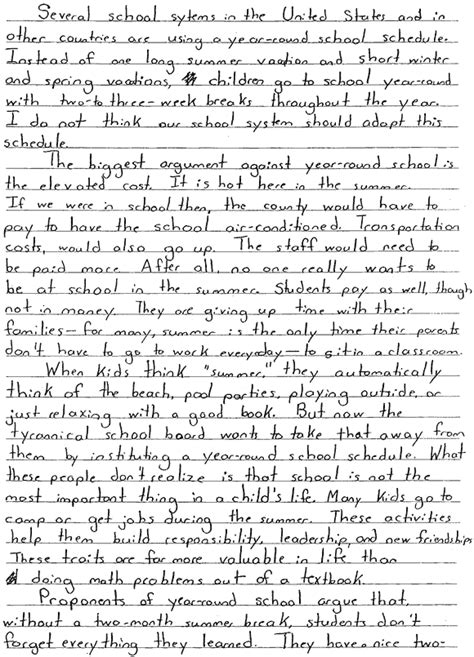 Several school sytems in the United States and in
other countries are using a year-round school schedule.
Instead of one long summer vacation and short winter
and spring vacations, children go to school year-round
with two-to three-week breaks throughout the year.
I do not think our school system should adapt this
schedule.
The biggest argument against year-round school is
the elevated cost. It is hot here in the summer.
If we were in school then, the county would have to
pay to have the school air-conditioned. Transportation
costs, would also go up. The staff would need to
be paid more. After all, no one really wants to
be at school in the summer. Students pay as well, though
not in money. They are giving up time with their
families—for many, summer is the only time their parents
don't have to go to work everyday—to sit in a classroom.
When kids think "summer," they automatically
think of the beach, pool parties, playing outside, or
just relaxing with a good book. But now the
tyrannical school board wants to take that away from
them by instituting a year-round school schedule. What
these people don't realize is that school is not the
most important thing in a child's life. Many kids go to
camp or get jobs during the summer. These activities
help them build responsibility, leadership, and new friendships
These traits are far more valuable in life than
doing math problems out of a textbook.
Proponents of year-round school argue that,
without a two-month summer break, students don't
forget everything they learned. They have a nice two-